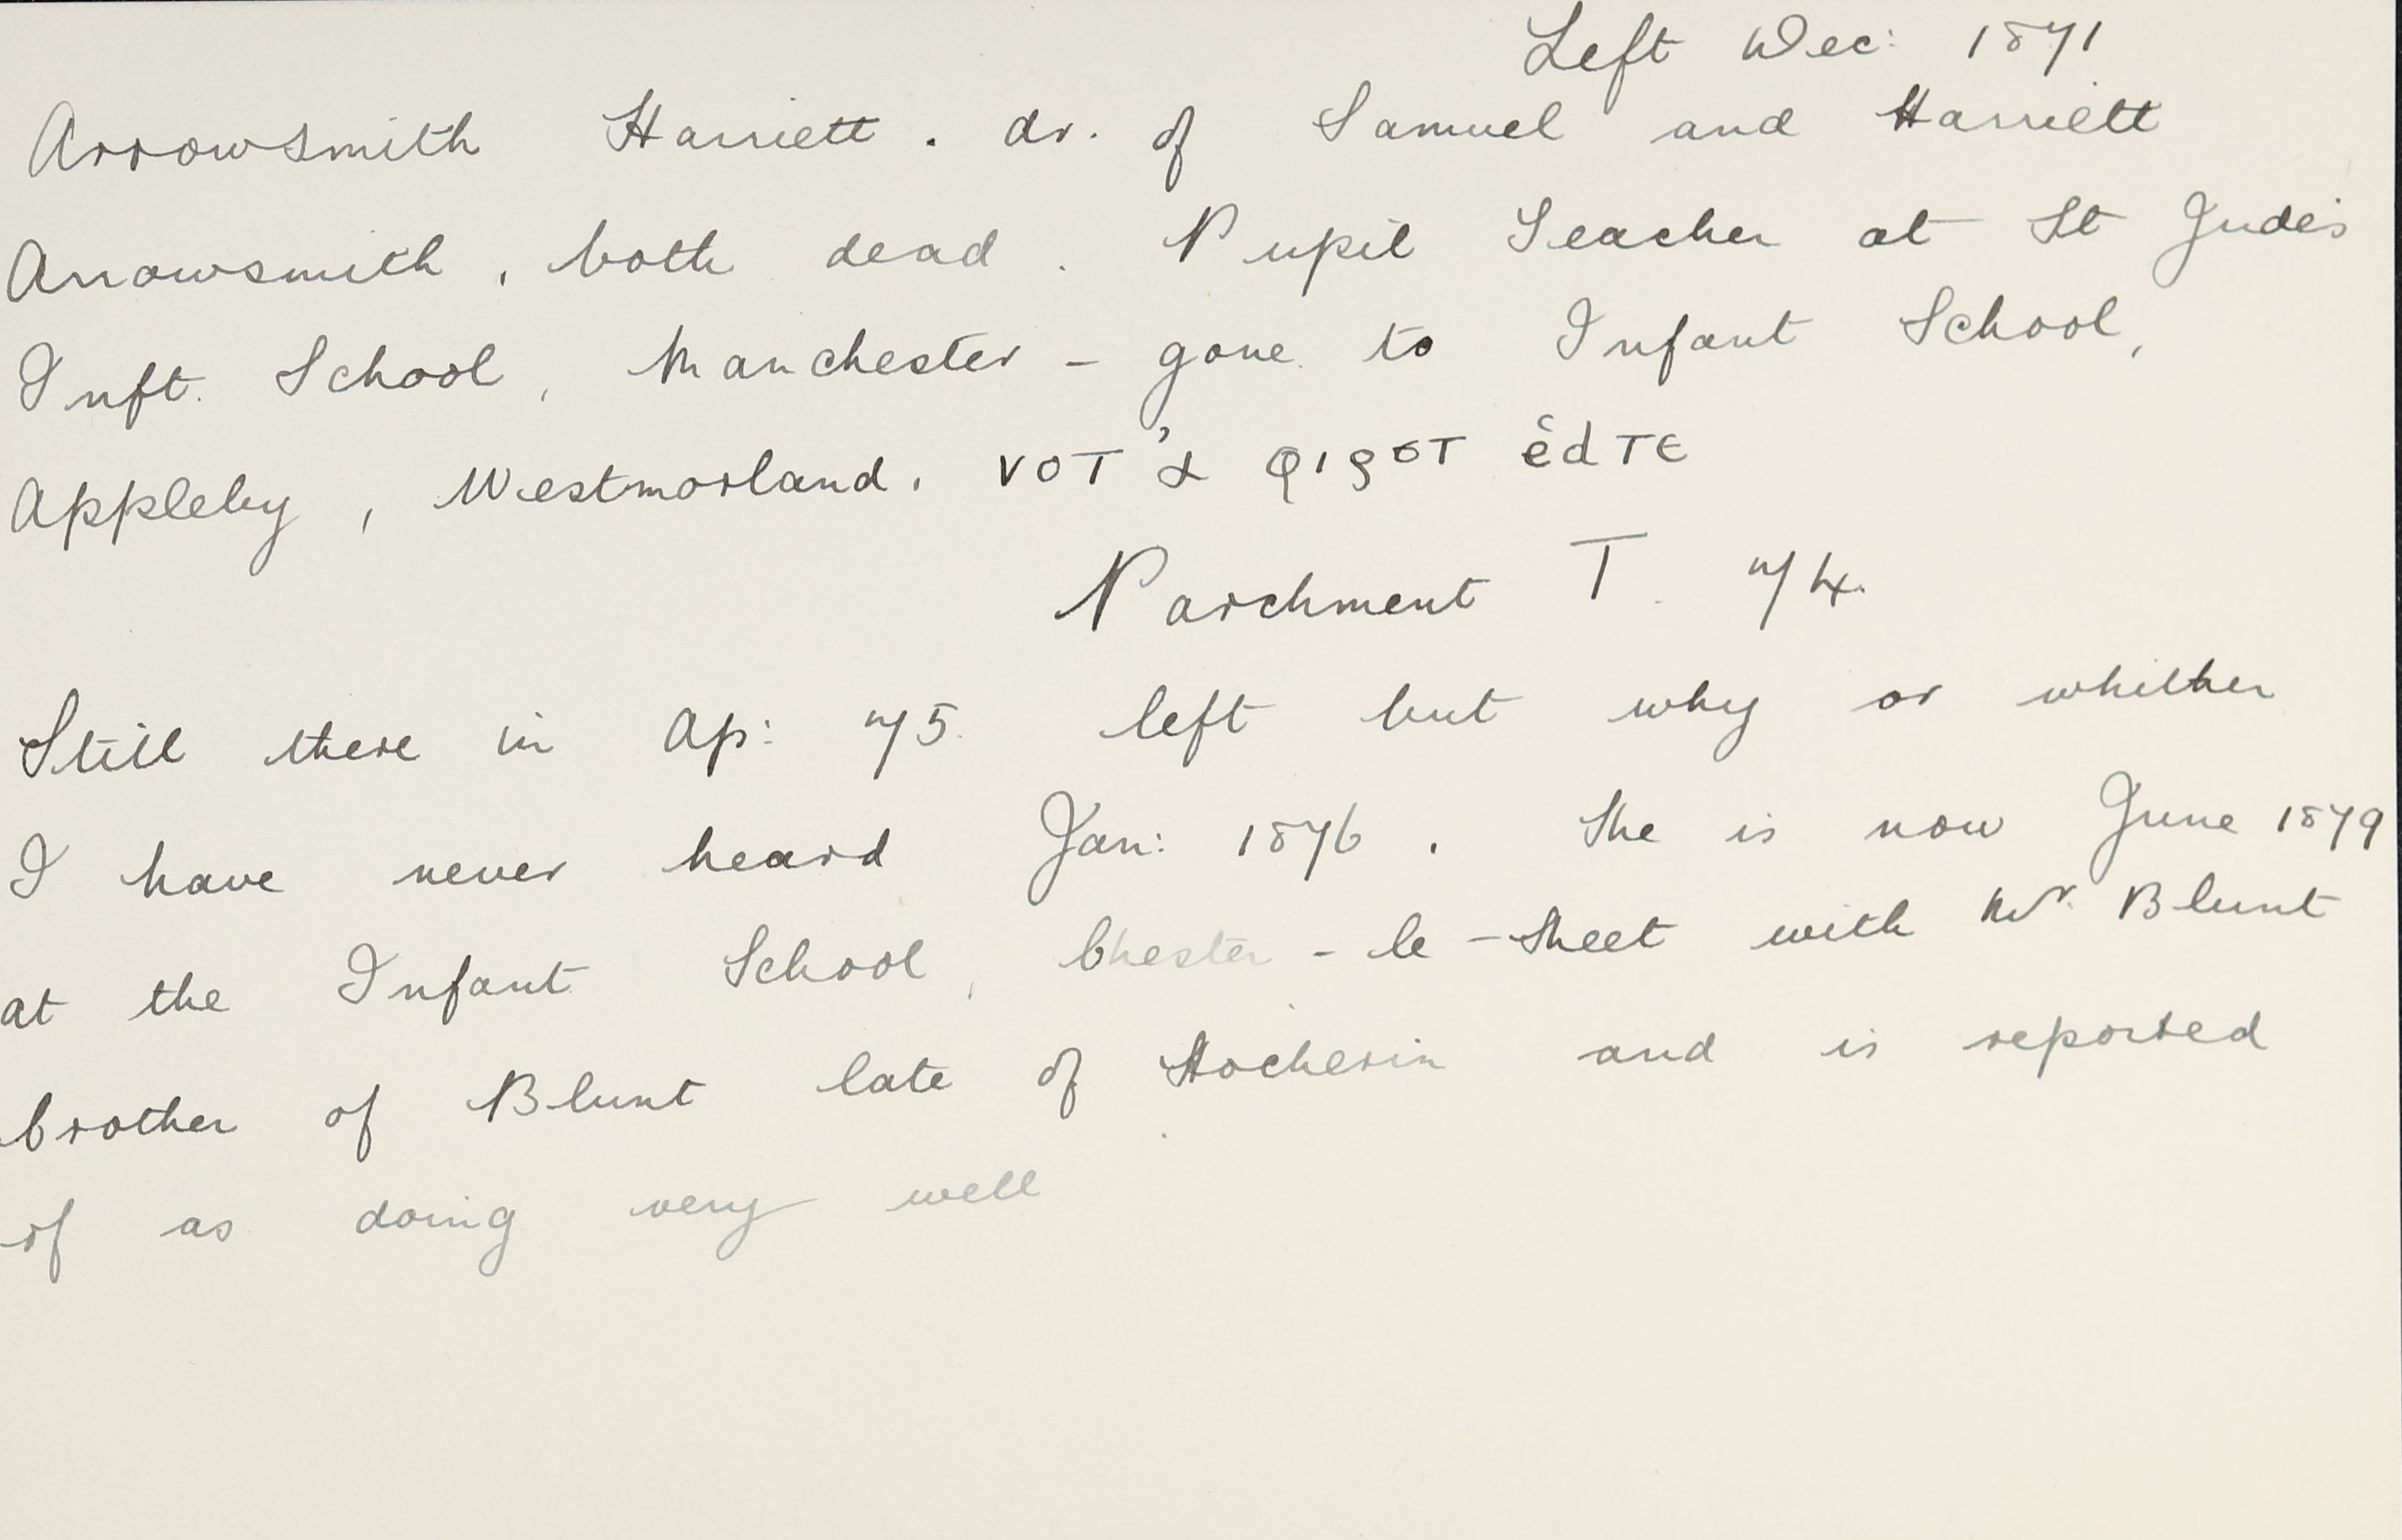 Left Dec: 1871
Arrowsmith Harriett . dr. of Samuel and Harriett
Arrowsmith , both dead . Pupil Teacher at St Jude's
Inft. School , Manchester - gone to Infant School,
Appleby , Westmorland .
Parchment T. 74.
Still there in Ap: 75. left but why or whither
I have never heard Jan: 1876 . She is now June 1879
at the Infant School , Chester - le - Street with Mr. Blunt
brother of Blunt late of and is reported
of as doing very well